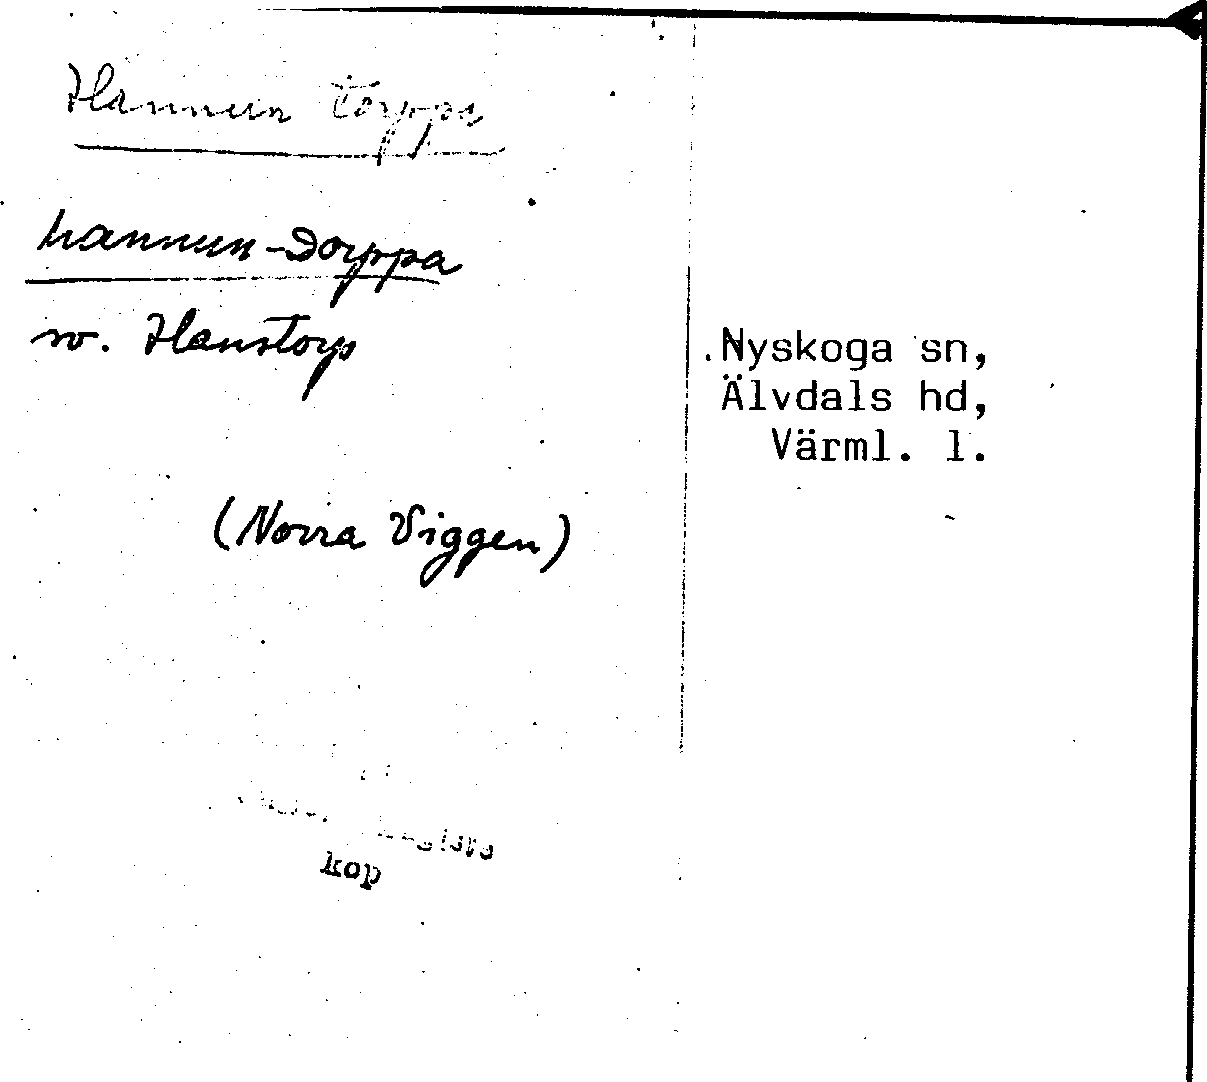 Hannun torppa
hannun-Dorppa
sv. Hanstorp
(Norra Viggen)
kop
Nyskoga sn,
Älvdals hd,
Värml. l.